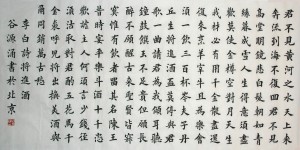 君不見黃河之水天上來
奔流到海不復回君不見
高堂明鏡悲白髮朝如青
絲暮成雪人生得意須盡
歡莫使金樽空對月天生
我材必有用千金散盡還
復來烹羊宰牛且為樂會
須一飲三百杯岑夫子丹
丘生將進酒杯莫停與君
歌一曲請君為我傾耳聽
鐘鼓饌玉不足貴但願長
醉不願醒古來聖賢皆寂
寞惟有飲者留其名陳王
昔時宴平樂斗酒十千恣
歡謔主人何為言少錢徑
須沽取對君酌五花馬千
金裘呼兒將出換美酒與
爾同銷萬古愁
李白詩將進酒
谷源涌書於北京